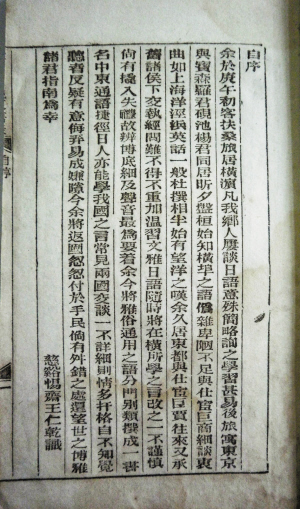 自序
余於庚午初客扶桑旅居橫濱凡我鄉人屢談日語意殊簡略詢之學習甚易後旅寓東京
與寶森羅君硯池楊君同居昕夕盤桓始知橫埠之語僞雜卑陋不足與仕宦巨商細談衷
曲如上海洋涇浜英話一般杜撰相半始有望洋之嘆余久居東都與仕宦巨賈往來又承
舊諸侯下交執經問難不得不重加溫習文雅日語隨時將在橫所學之言改之一不謹慎
尚有攙入失禮故辨博底細及聲音最爲要着余今將雅俗通用之語分門別類撰成一書
名中東通語捷徑日人亦能學我國之言常見兩國交談一不詳細則情多扞格自不知覺
聽者反疑有意侮弄易成嫌隙今余將返國怱怱付於手民倘有舛錯之處還望世之博雅
諸君指南爲幸
慈谿惕齋王仁乾識
自序